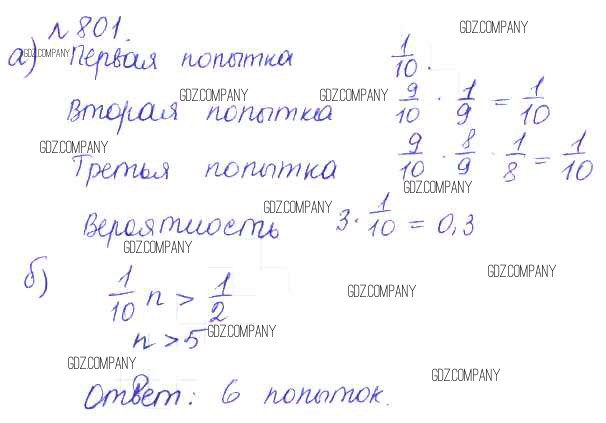 № 801.
а) Первая попытка 1/10.
Вторая попытка 9/10 · 1/9 = 1/10
Третья попытка 9/10 · 8/9 · 1/8 = 1/10
Вероятность 3 · 1/10 = 0,3
б)
1/10 n > 1/2
n > 5
Ответ: 6 попыток.
GDZ.COMPANY
GDZ.COMPANY
GDZ.COMPANY
GDZ.COMPANY
GDZ.COMPANY
GDZ.COMPANY
GDZ.COMPANY
GDZ.COMPANY
GDZ.COMPANY
GDZ.COMPANY
GDZ.COMPANY
GDZ.COMPANY
GDZ.COMPANY